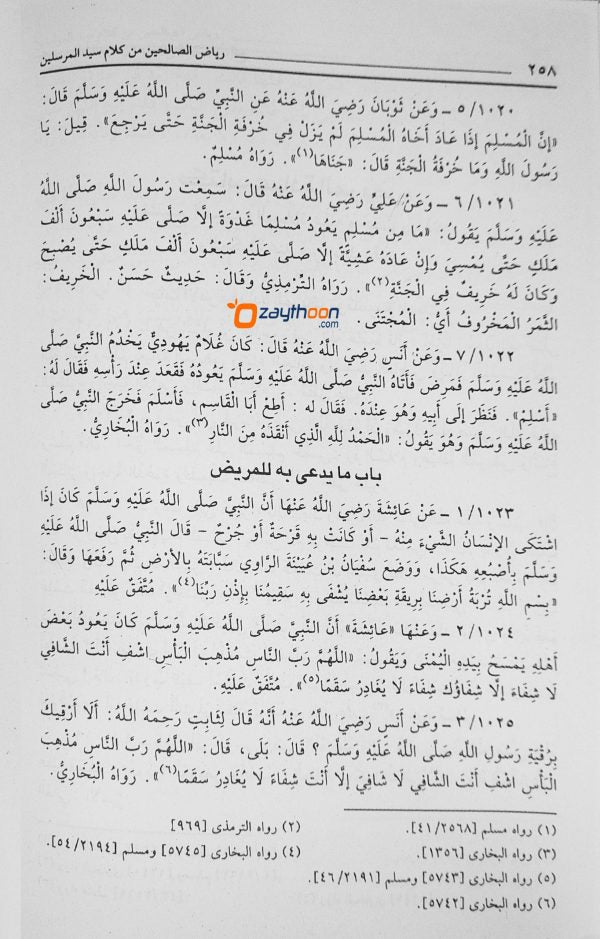 رياض الصالحين من كلام سيد المرسلين
٢٥٨
٥/١٠٢٠ ـ وَعَنْ ثَوْبَانَ رَضِيَ اللَّهُ عَنْهُ عَنِ النَّبِيِّ صَلَّى اللَّهُ عَلَيْهِ وَسَلَّمَ قَالَ:
«إِنَّ الْمُسْلِمَ إِذَا عَادَ أَخَاهُ الْمُسْلِمَ لَمْ يَزَلْ فِي خُرْفَةِ الْجَنَّةِ حَتَّى يَرْجِعَ». قِيلَ: يَا
رَسُولَ اللَّهِ وَمَا خُرْفَةُ الْجَنَّةِ قَالَ: «جَنَاهَا(١)». رَوَاهُ مُسْلِمٌ.
٦/١٠٢١ ـ وَعَنْ عَلِيٍّ رَضِيَ اللَّهُ عَنْهُ قَالَ: سَمِعْتُ رَسُولَ اللَّهِ صَلَّى اللَّهُ
عَلَيْهِ وَسَلَّمَ يَقُولُ: «مَا مِن مُسْلِمٍ يَعُودُ مُسْلِمًا غَدْوَةً إِلَّا صَلَّى عَلَيْهِ سَبْعُونَ أَلْفَ
مَلَكٍ حَتَّى يُمْسِيَ وَإِنْ عَادَهُ عَشِيَّةً إِلَّا صَلَّى عَلَيْهِ سَبْعُونَ أَلْفَ مَلَكٍ حَتَّى يُصْبِحَ
وَكَانَ لَهُ خَرِيفٌ فِي الْجَنَّةِ(٢)». رَوَاهُ التِّرْمِذِيُّ وَقَالَ: حَدِيثٌ حَسَنٌ. الْخَرِيفُ:
الثَّمَرُ الْمَخْرُوفُ أَيُّ: الْمُجْتَنَى.
zaythoon
.com
٧/١٠٢٢ ـ وَعَنْ أَنَسٍ رَضِيَ اللَّهُ عَنْهُ قَالَ: كَانَ غُلَامٌ يَهُودِيٌّ يَخْدُمُ النَّبِيَّ صَلَّى
اللَّهُ عَلَيْهِ وَسَلَّمَ فَمَرِضَ فَأَتَاهُ النَّبِيُّ صَلَّى اللَّهُ عَلَيْهِ وَسَلَّمَ يَعُودُهُ فَقَعَدَ عِنْدَ رَأْسِهِ فَقَالَ لَهُ:
«أَسْلِمْ». فَنَظَرَ إِلَى أَبِيهِ وَهُوَ عِنْدَهُ. فَقَالَ لَه : أَطِعْ أَبَا الْقَاسِمِ، فَأَسْلَمَ فَخَرَجَ النَّبِيُّ صَلَّى
اللَّهُ عَلَيْهِ وَسَلَّمَ وَهُوَ يَقُولُ: «الْحَمْدُ لِلَّهِ الَّذِي أَنْقَذَهُ مِنَ النَّارِ(٣)». رَوَاهُ الْبُخَارِيُّ.
باب ما يدعى به للمريض
١/١٠٢٣ ـ عَنْ عَائِشَةَ رَضِيَ اللَّهُ عَنْهَا أَنَّ النَّبِيَّ صَلَّى اللَّهُ عَلَيْهِ وَسَلَّمَ كَانَ إِذَا
اشْتَكَى الإِنْسَانُ الشَّيْءَ مِنْهُ - أَوْ كَانَتْ بِهِ قَرْحَةٌ أَوْ جُرْحٌ - قَالَ النَّبِيُّ صَلَّى اللَّهُ عَلَيْهِ
وَسَلَّمَ بِأُصْبُعِهِ هَكَذَا، وَوَضَعَ سُفْيَانُ بْنُ عُيَيْنَةَ الرَّاوِي سَبَّابَتَهُ بِالأَرْضِ ثُمَّ رَفَعَهَا وَقَالَ:
«بِسْمِ اللَّهِ تُرْبَةُ أَرْضِنَا بِرِيقَةِ بَعْضِنَا يُشْفَى بِهِ سَقِيمُنَا بِإِذْنِ رَبِّنَا(٤)». مُتَّفَقٌ عَلَيْهِ
٢/١٠٢٤ ـ وَعَنْهَا «عَائِشَةَ» أَنَّ النَّبِيَّ صَلَّى اللَّهُ عَلَيْهِ وَسَلَّمَ كَانَ يَعُودُ بَعْضَ
أَهْلِهِ يَمْسَحُ بِيَدِهِ الْيُمْنَى وَيَقُولُ: «اللَّهُمَّ رَبَّ النَّاسِ مُذْهِبَ الْبَأْسِ اشْفِ أَنْتَ الشَّافِي
لَا شِفَاءَ إِلَّا شِفَاؤُكَ شِفَاءً لَا يُغَادِرُ سَقَمًا(٥)». مُتَّفَقٌ عَلَيْهِ.
٣/١٠٢٥ ـ وَعَنْ أَنَسٍ رَضِيَ اللَّهُ عَنْهُ أَنَّهُ قَالَ لِثَابِتٍ رَحِمَهُ اللَّهُ: أَلَا أَرْقِيكَ
بِرُقْيَةِ رَسُولِ اللَّهِ صَلَّى اللَّهُ عَلَيْهِ وَسَلَّمَ ؟ قَالَ: بَلَى، قَالَ: «اللَّهُمَّ رَبَّ النَّاسِ مُذْهِبَ
الْبَأْسِ اشْفِ أَنْتَ الشَّافِي لَا شَافِيَ إِلَّا أَنْتَ شِفَاءً لَا يُغَادِرُ سَقَمًا(٦)». رَوَاهُ الْبُخَارِيُّ.
(١) رواه مسلم [٤١/٢٥٦٨].
(٢) رواه الترمذى [٩٦٩]
(٣) رواه البخارى [١٣٥٦].
(٤) رواه البخارى [٥٧٤٥] ومسلم [٥٤/٢١٩٤].
(٥) رواه البخارى [٥٧٤٣] ومسلم [٤٦/٢١٩١].
(٦) رواه البخارى [٥٧٤٢].